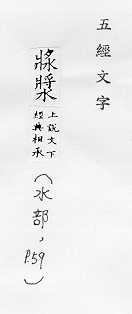 五經文字
漿
上說文下
經典相承
(水部，P.59)